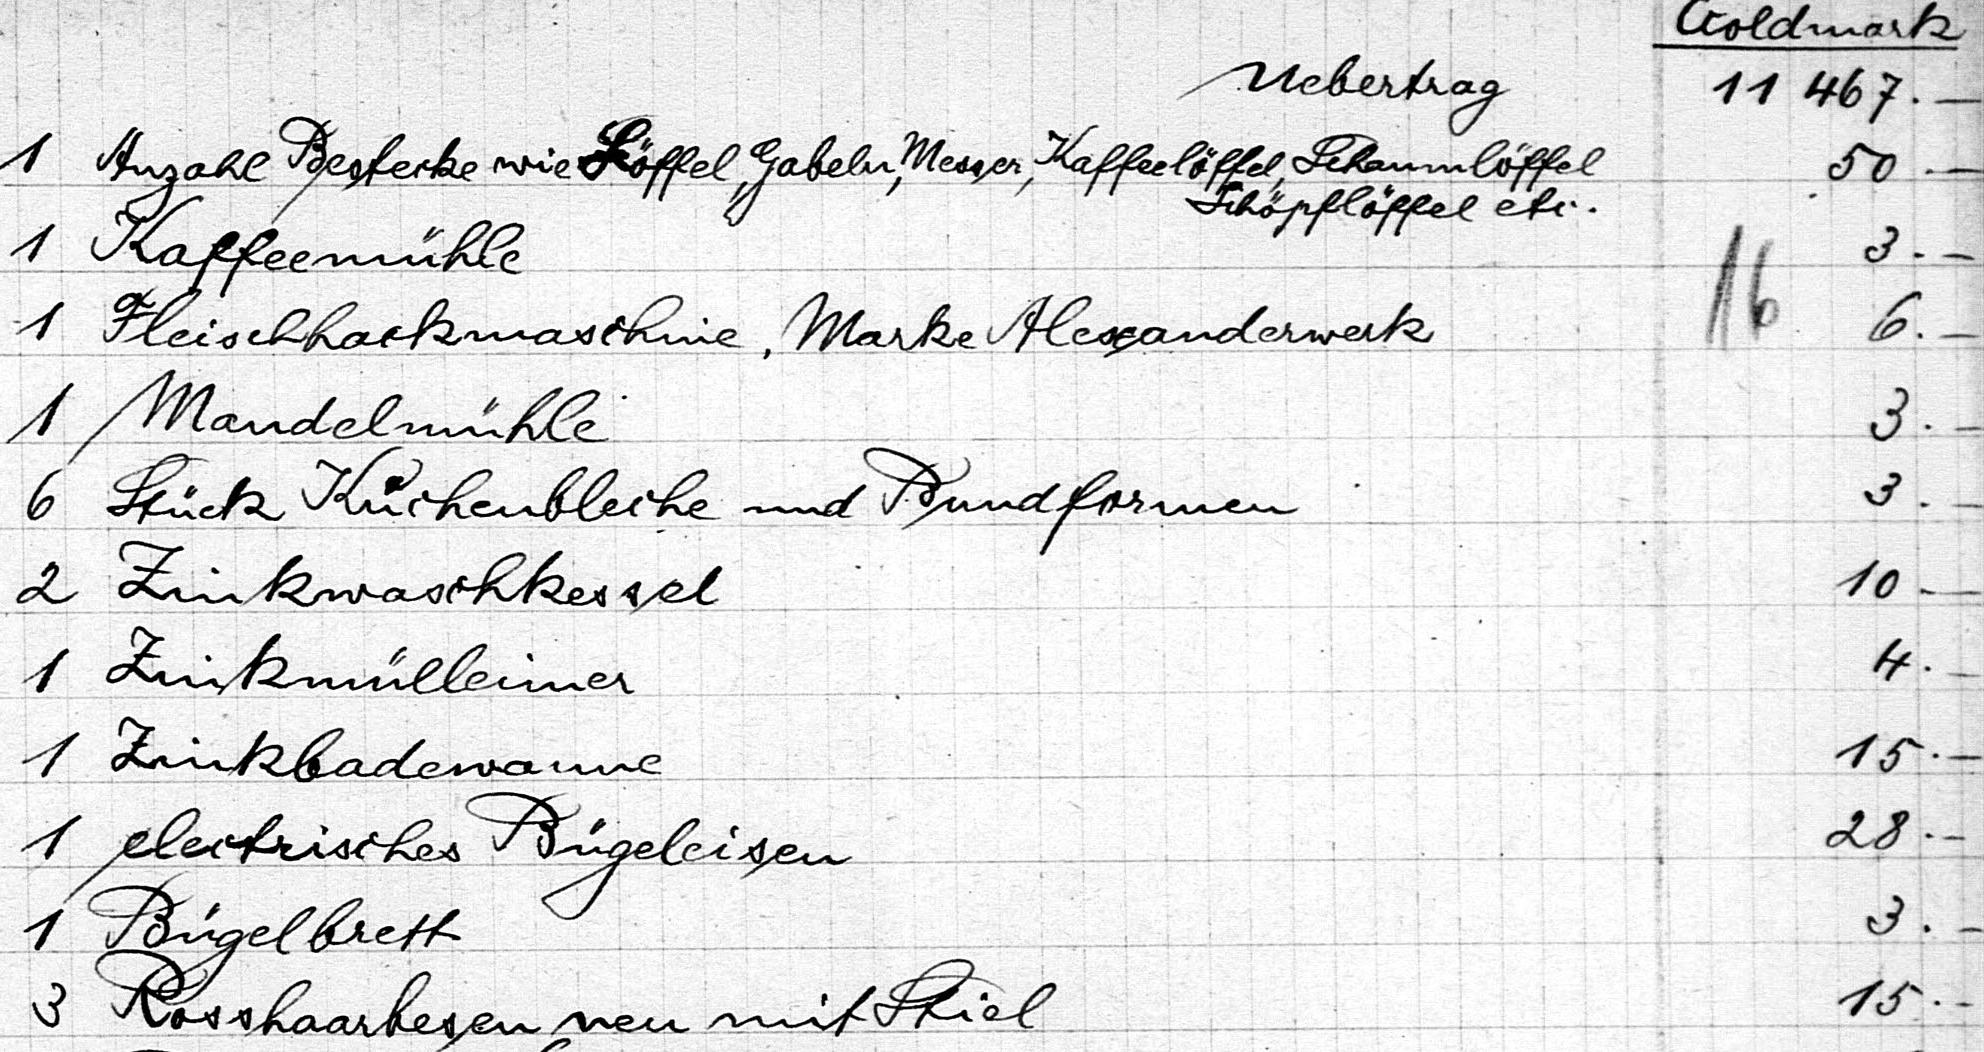 Goldmark
Uebertrag 11 467.—
1 Anzahl Bestecke wie Löffel, Gabeln, Messer, Kaffeelöffel, Schaumlöffel 50.—
Schöpflöffel etc.
1 Kaffeemühle 3.—
1 Fleischhackmaschine, Marke Alexanderwerk 16 6.—
1 Mandelmühle 3.—
6 Stück Kuchenbleche und Bundformen 3.—
2 Zinkwaschkessel 10.—
1 Zinkmülleimer 4.—
1 Zinkbadewanne 15.—
1 electrisches Bügeleisen 28.—
1 Bügelbrett 3.—
3 Rosshaarbesen neu mit Stiel 15.—